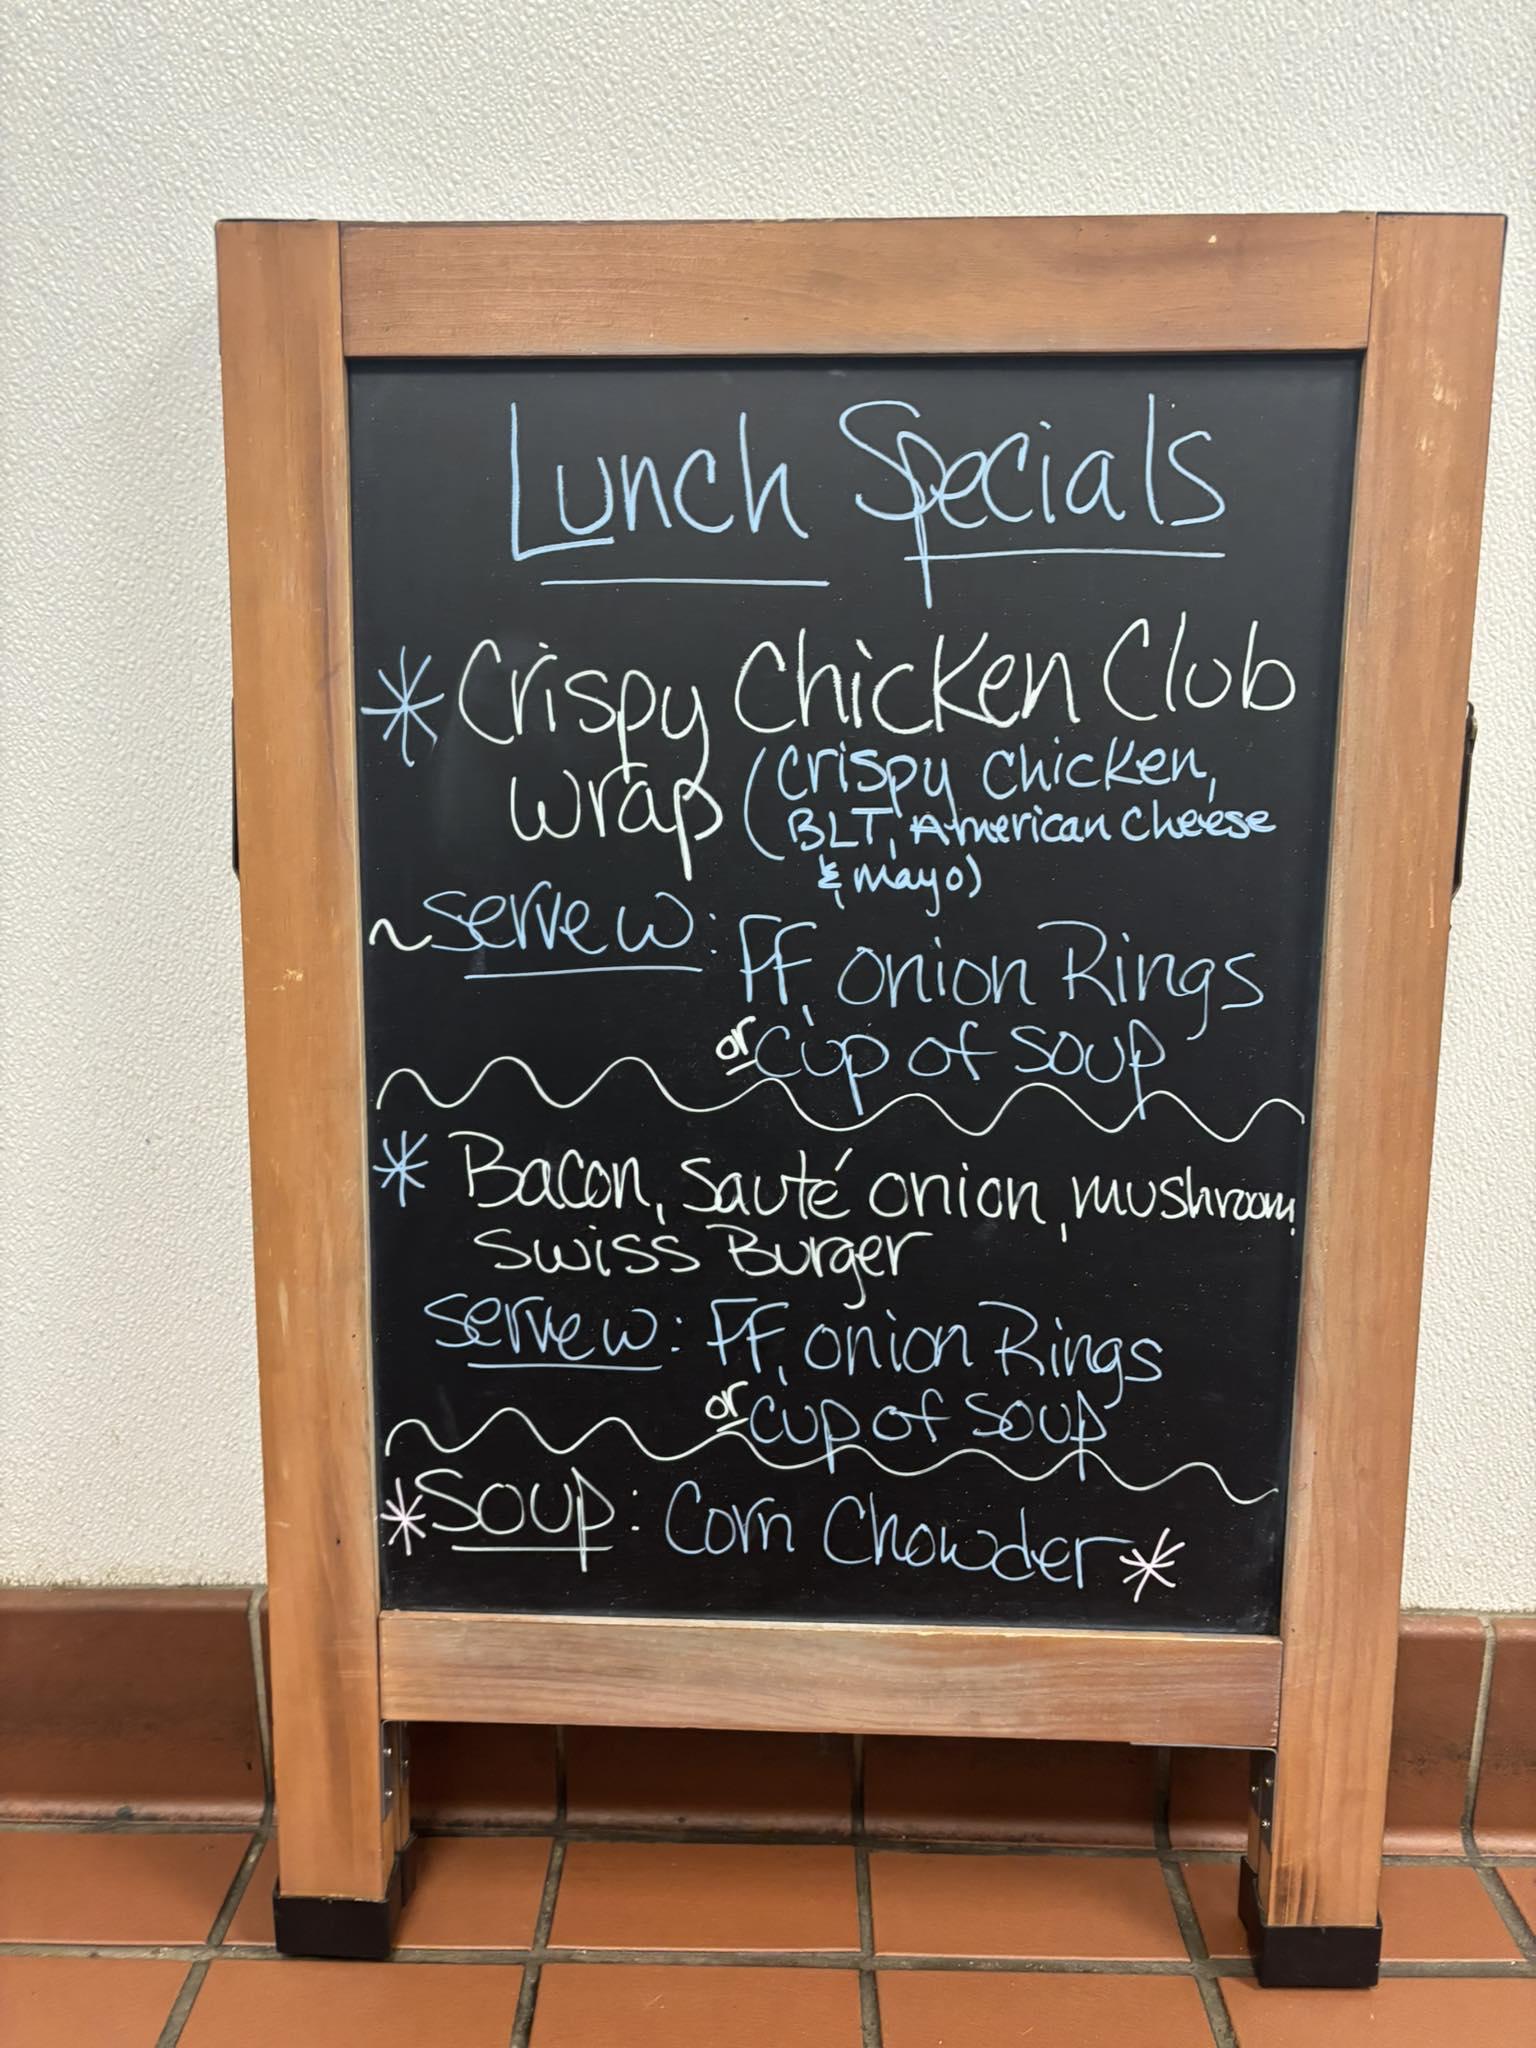 Lunch Specials
* Crispy Chicken Club
wrap (crispy chicken,
BLT, American cheese
& mayo)
~ serve w: FF, onion Rings
or cup of soup
* Bacon, sauté onion, mushroom,
swiss Burger
serve w: FF, onion Rings
or cup of soup
* Soup: Corn Chowder *